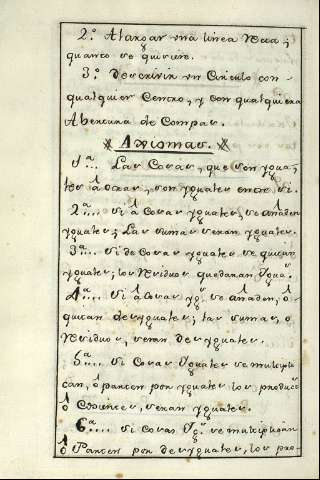 2.º Alargar una linea Recta,
quanto se quiera.
3.º Descrivir un Circulo con
qualquier Centro, y con qualquiera
Abertura de Compas.
Axiomas.
1.ª .... Las Cosas, que son ygua,
les à otras, son yguales entre si.
2.ª .... Si à Cosas yguales, se añaden
yguales; Las sumas seran yguales.
3.ª .... Si de Cosas yguales se quitan
yguales; los Residuos quedaran Yguaˢ.
4.ª .... Si à Cosas yg.ˢ se añaden, ò
quitan desyguales; las sumas, o
Residuos, seran desyguales.
5.ª .... Si Cosas Yguales se multipli
can, ò parten por yguales, los productˢ
ò Cocientes, seran yguales.
6.ª .... Si Cosas Yg.ˢ se multiplican
ò Parten por desyguales, los pro-